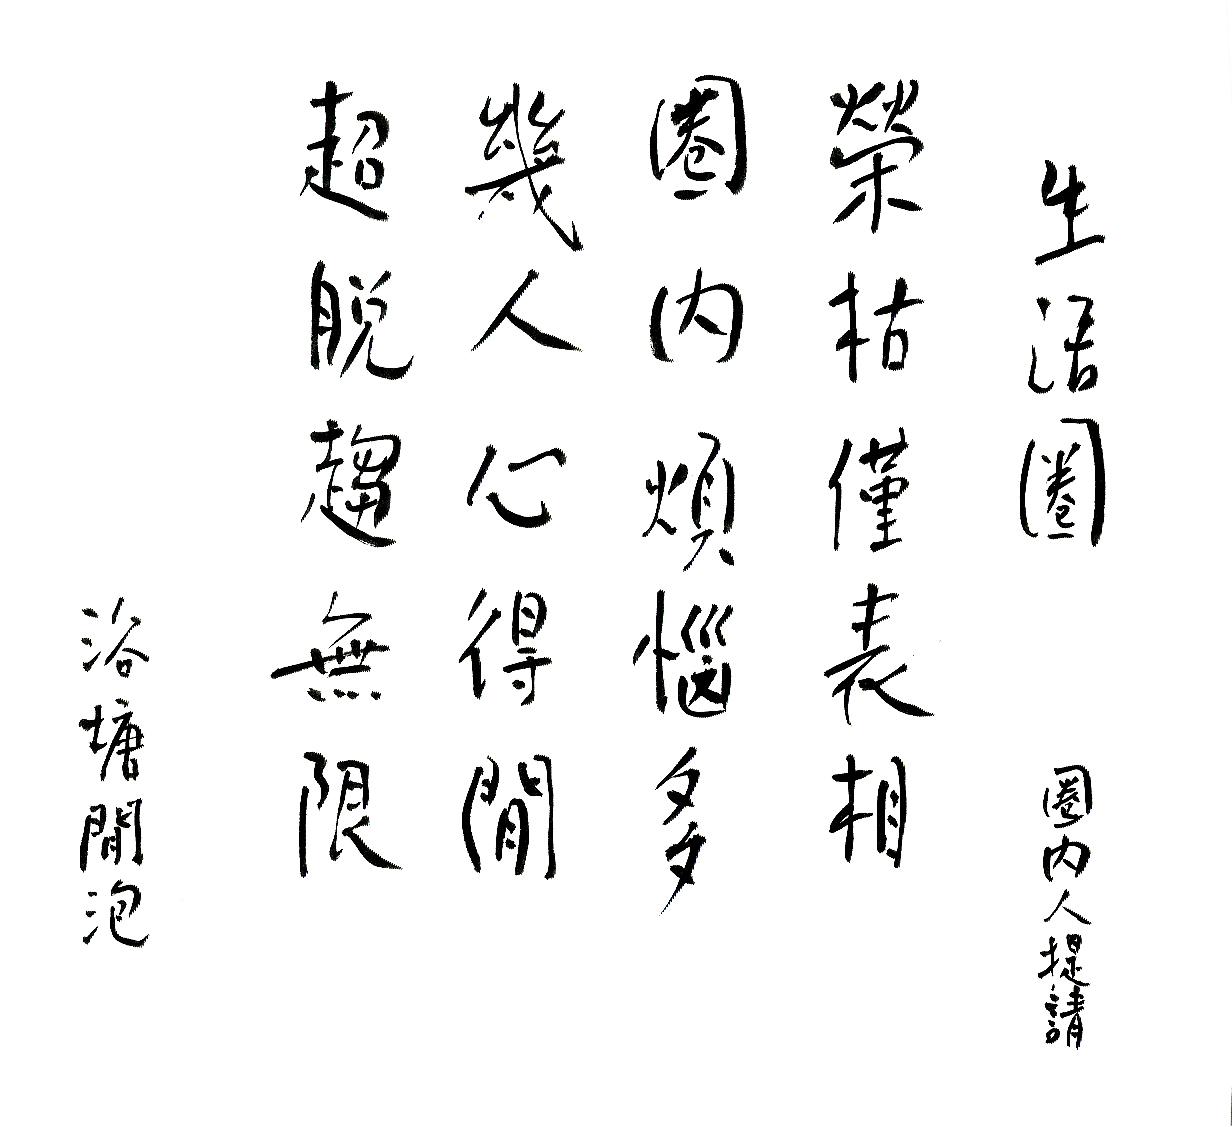 生活圈
圈内人提請
榮枯僅表相
圈内煩惱多
幾人心得閒
超脫趨無限
浴塘閒泡